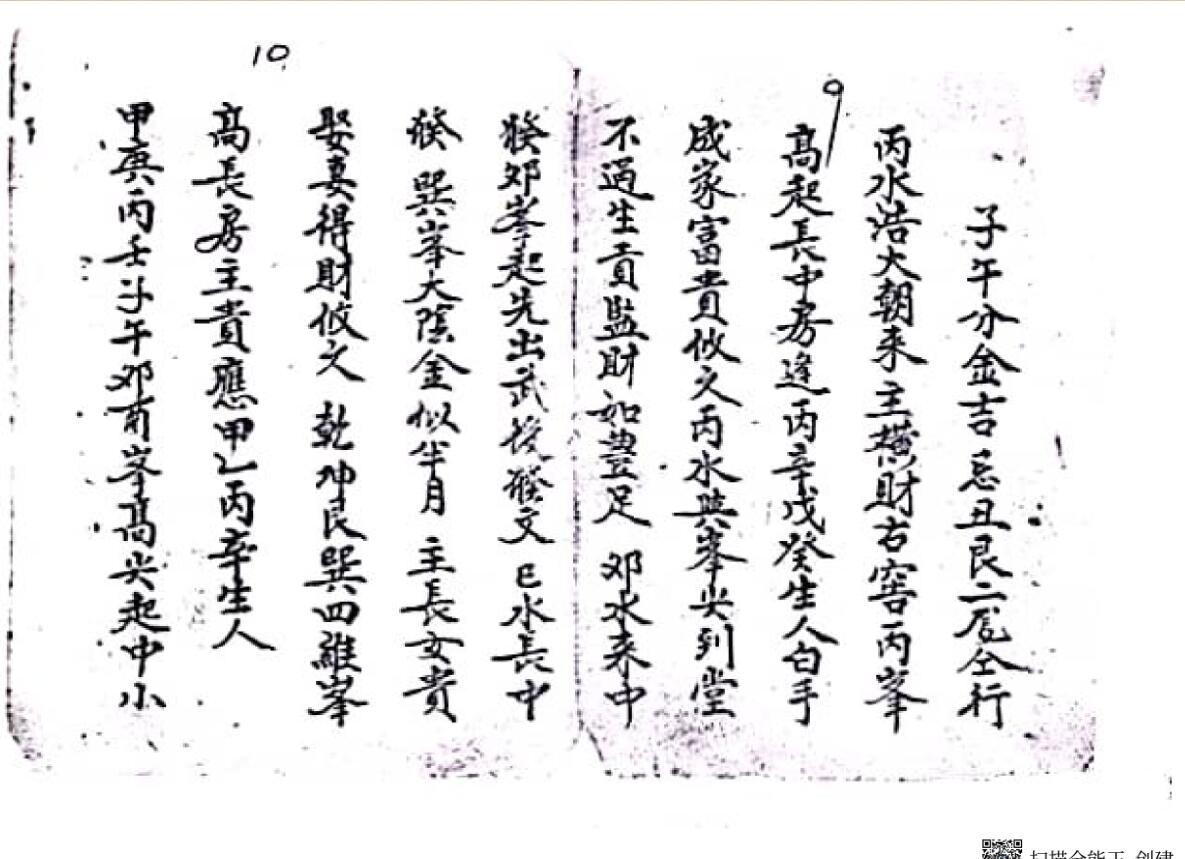 9
子午分金吉忌丑艮二尾仝行
丙水浩大朝来主横財古窖丙峯
高起長中房逢丙辛戊癸生人白手
成家富貴攸久丙水與峯尖到堂
不過生貢監財如豊足 邜水来中
發邜峯起先出武後發文 巳水長中
10
發 巽峯大陰金似半月 主長女貴
娶妻得財攸久 乾坤艮巽四維峯
高長房主貴應甲乙丙辛生人
甲庚丙壬子午邜酉峯高尖起中小
扫描全能王 创建